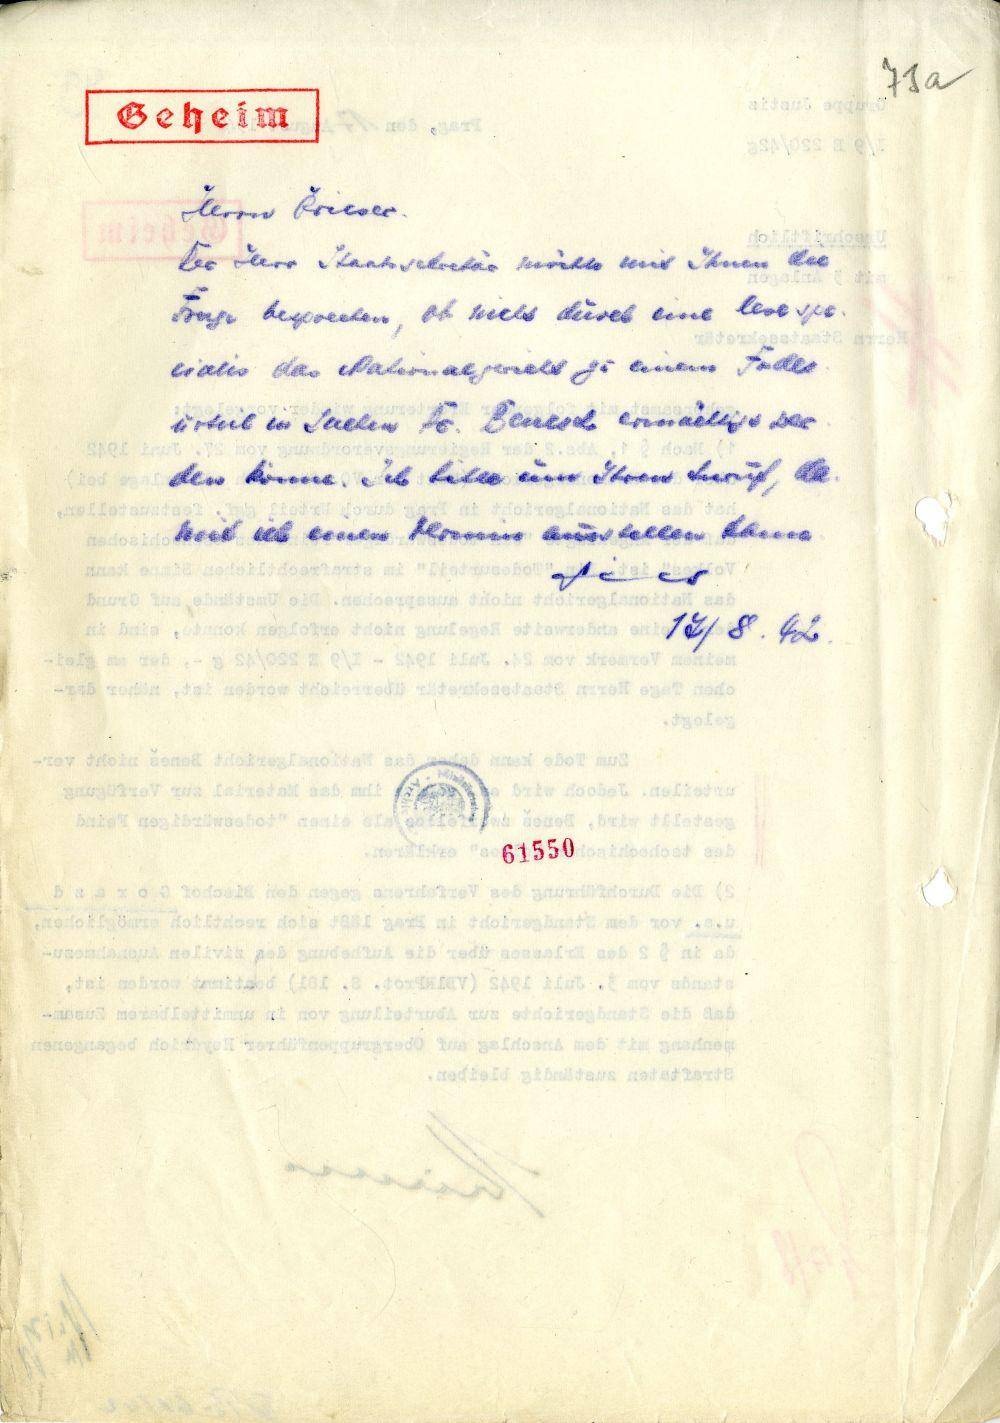 73a
Geheim
Herrn Krieser.
Der Herr Staatssekretär möchte mit Ihnen die
Frage besprechen, ob nicht durch eine lex spe-
cialis das Nationalgericht zu einem Todes-
urteil in Sachen Dr. Benesch ermächtigt wer-
den könne. Ich bitte um Ihren Anruf, da-
mit ich einen Termin ausstellen kann
17/8.42.
61550
Gruppe Justiz
Prag, den 17. August
I/9 E 220/42g
Geheim
Urschriftlich
mit 3 Anlagen
Herrn Staatssekretär
gehorsamst mit folgender Erläuterung wieder vorgelegt:
1) Nach § 1, Abs.2 der Regierungsverordnung vom 27. Juni 1942
hat das Nationalgericht in Prag durch Urteil ggf. festzustellen,
Volkes" ist. Ein "Todesurteil" im strafrechtlichen Sinne kann
das Nationalgericht nicht aussprechen. Die Umstände, auf Grund
eine anderweite Regelung nicht erfolgen konnte, sind in
meinem Vermerk vom 24. Juli 1942 - I/9 E 220/42 g -, der am glei-
chen Tage Herrn Staatssekretär überreicht worden ist, näher dar-
gelegt.
Zum Tode kann daher das Nationalgericht Beneš nicht ver-
urteilen. Jedoch wird es, wenn ihm das Material zur Verfügung
gestellt wird, Beneš zweifellos als einen "todeswürdigen Feind
des tschechischen Volkes" erklären.
2) Die Durchführung des Verfahrens gegen den Bischof G o r a z d
u.a. vor dem Standgericht in Prag läßt sich rechtlich ermöglichen,
da in § 2 des Erlasses über die Aufhebung des zivilen Ausnahmezu-
stands vom 3. Juli 1942 (VBlRProt. S. 181) bestimmt worden ist,
daß die Standgerichte zur Aburteilung von in unmittelbarem Zusam-
menhang mit dem Anschlag auf Obergruppenführer Heydrich begangenen
Straftaten zuständig bleiben.